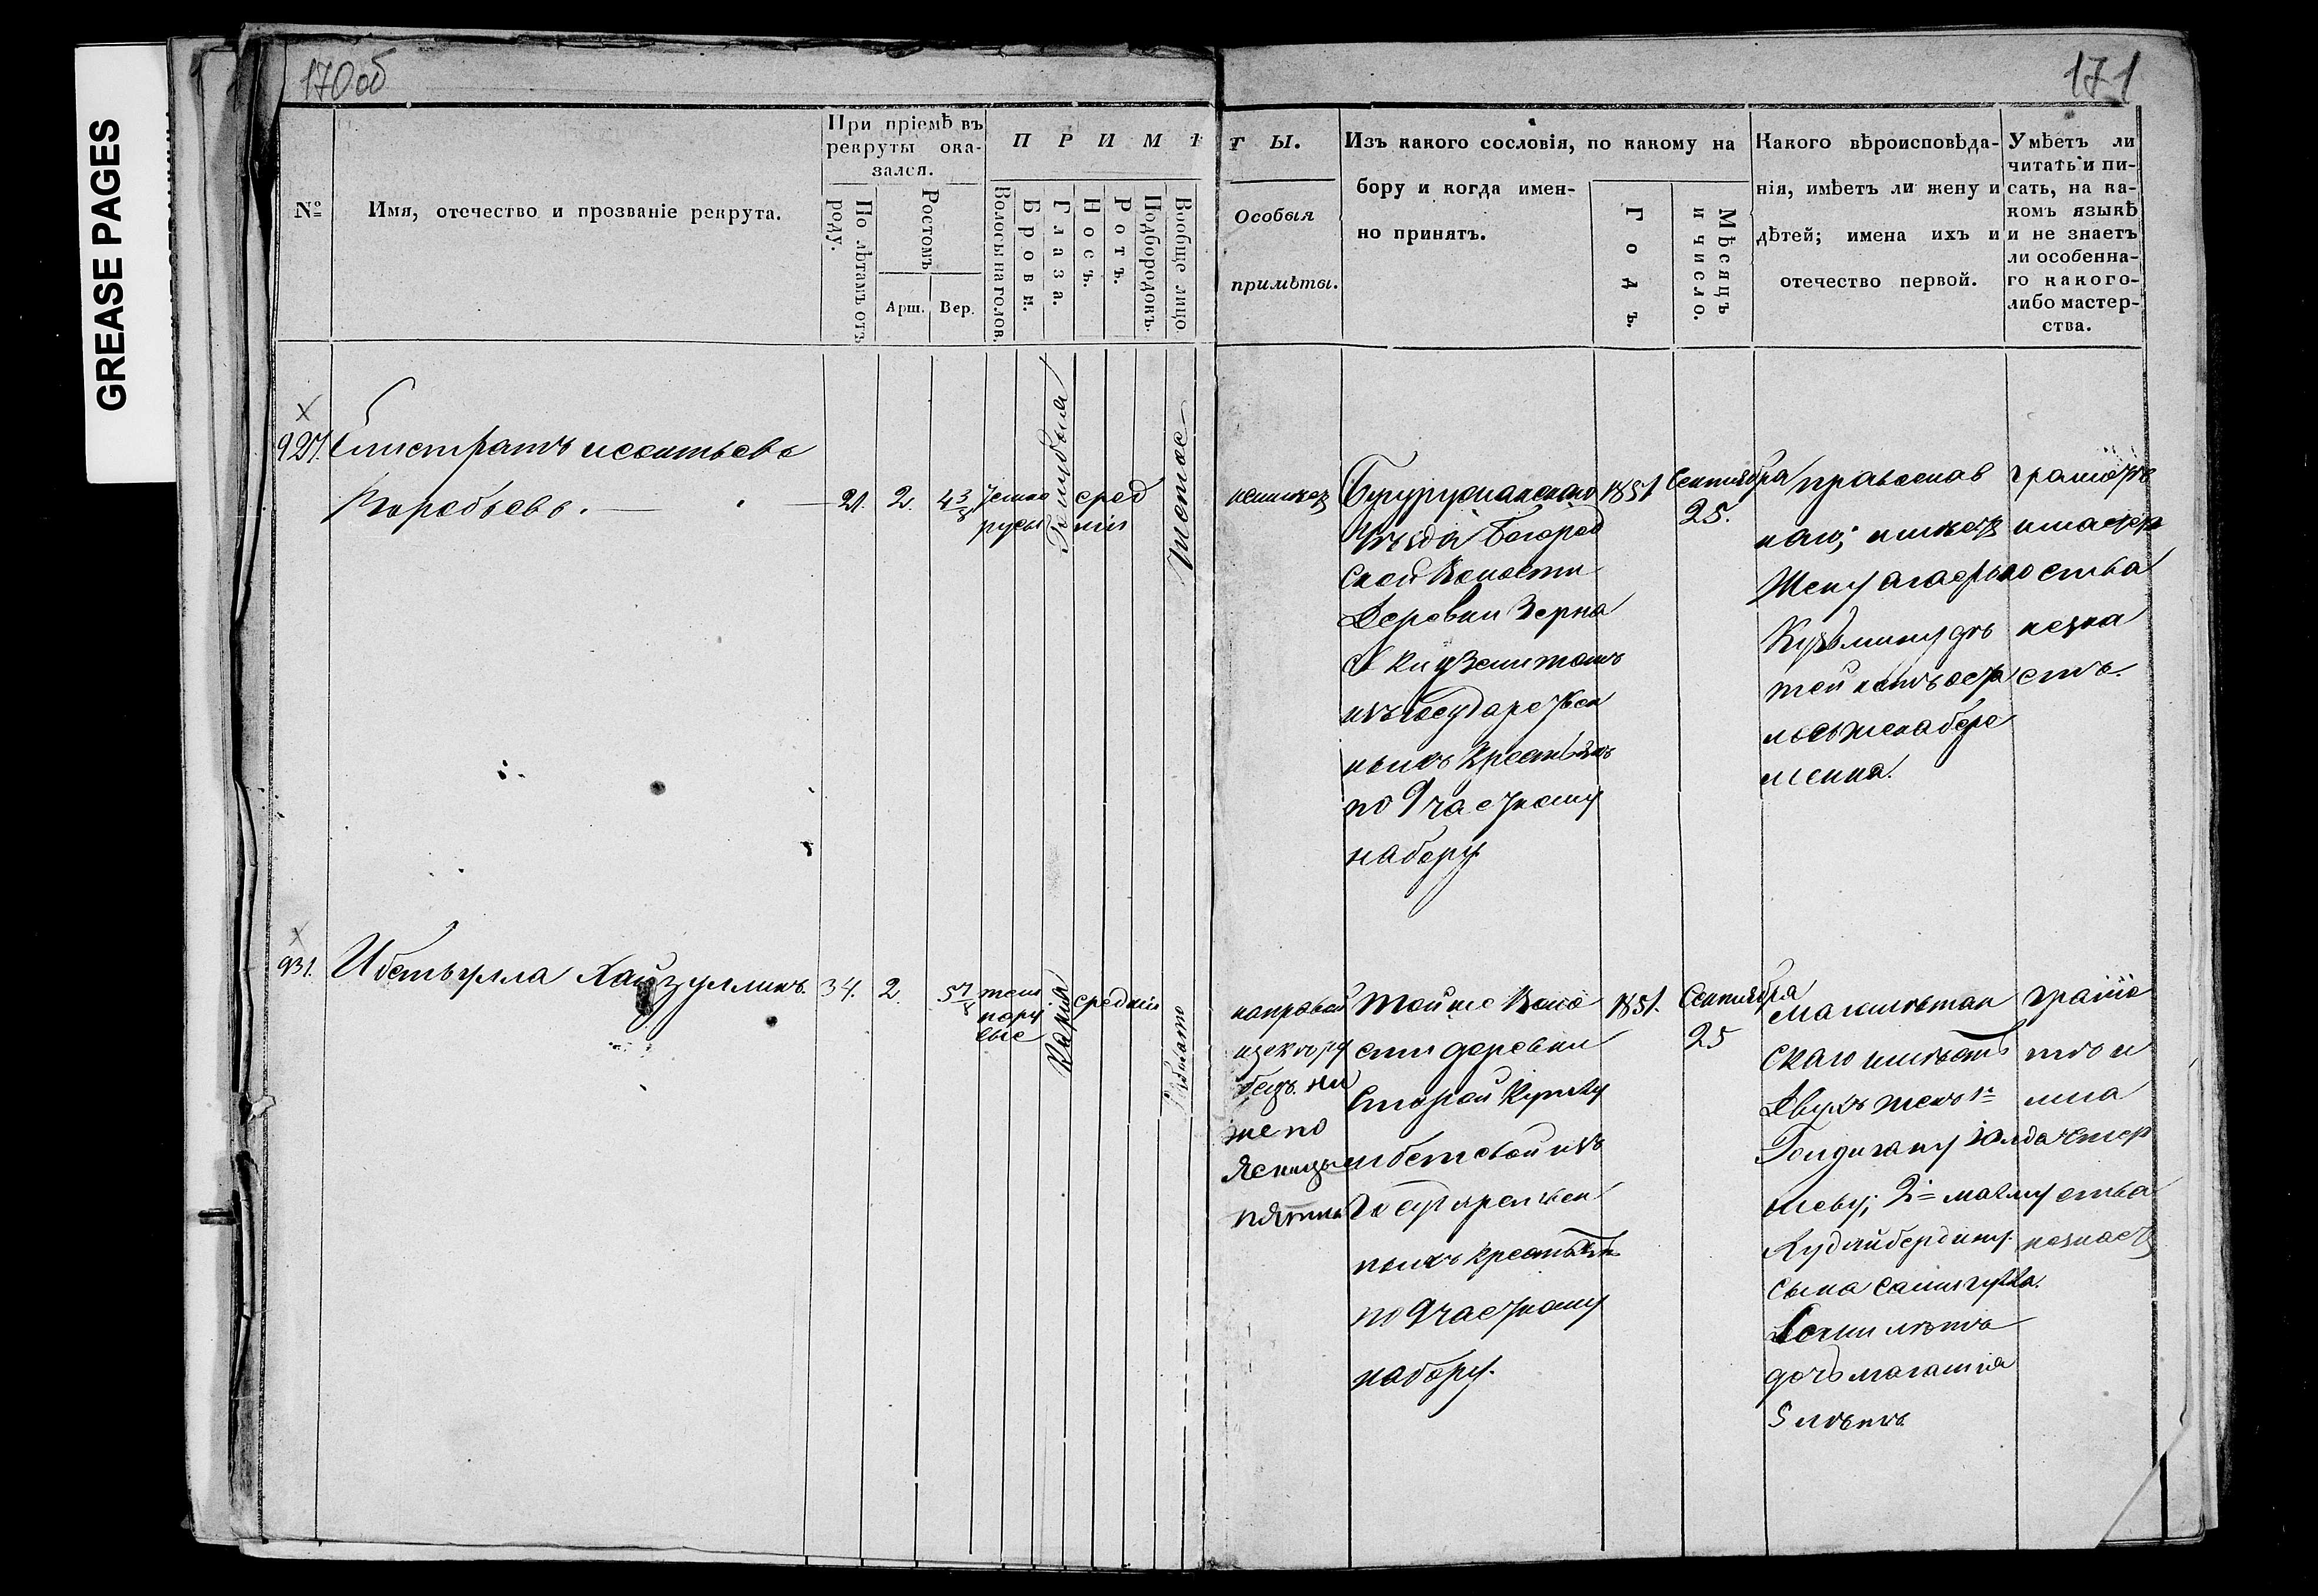 GREASE PAGES
170 об
171
№
Имя, отечество и прозваніе рекрута.
При пріемѣ въ
рекруты ока-
зался.
По лѣтамъ отъ
роду.
Ростомъ
Арш.
Вер.
П Р И М Ѣ
Волосы на голов.
Брови.
Глаза.
Носъ.
Ротъ.
Подбородокъ.
Вообще лицо.
Т Ы.
Особыя
примѣты.
Изъ какого сословія, по какому на
бору и когда имен-
но принятъ.
Годъ.
Мѣсяцъ
и число.
Какого вѣроисповѣда-
нія, имѣетъ ли жену и
дѣтей; имена ихъ и
отечество первой.
Умѣетъ ли
читать и пи-
сать, на ка-
комъ языкѣ
и не знаетъ
ли особенна-
го какого-
либо мастер-
ства.
927.
Елистратъ
Воробьевъ.
21.
2.
4 3/8
темно
русы
Голубыя
сред
нія
чистое
неимѣет
Бугурусланскаго
Уезда Богород
ской Волости
Деревни
изъ Государствен
ныхъ Крестьянъ
по 9 частному
набору
1851
Сентября
25.
православ
наго; имѣетъ
Жену
Кузьмину дѣ
тей нетъ оста
лась жена бере
менна.
грамотѣ
и мастер
ства
незна
етъ.
931.
Ибетъулла Хайзуллинъ.
34.
2.
5 7/8
тем
нору
сые
Карія
средния
на правой
щеке
ниже по
пятна
Той же Воло
сти деревни
Старой
изъ
Государствен
ныхъ Крестьянъ
по 9 частному
набору.
1851.
Сентября
25
Магометан
скаго имѣетъ
Двухъ женъ 1я
2я
Кудайбердину.
Сына
Семи летъ
дочь
5 летъ
грамо
тѣ и
ма
стер
ства
незнаетъ